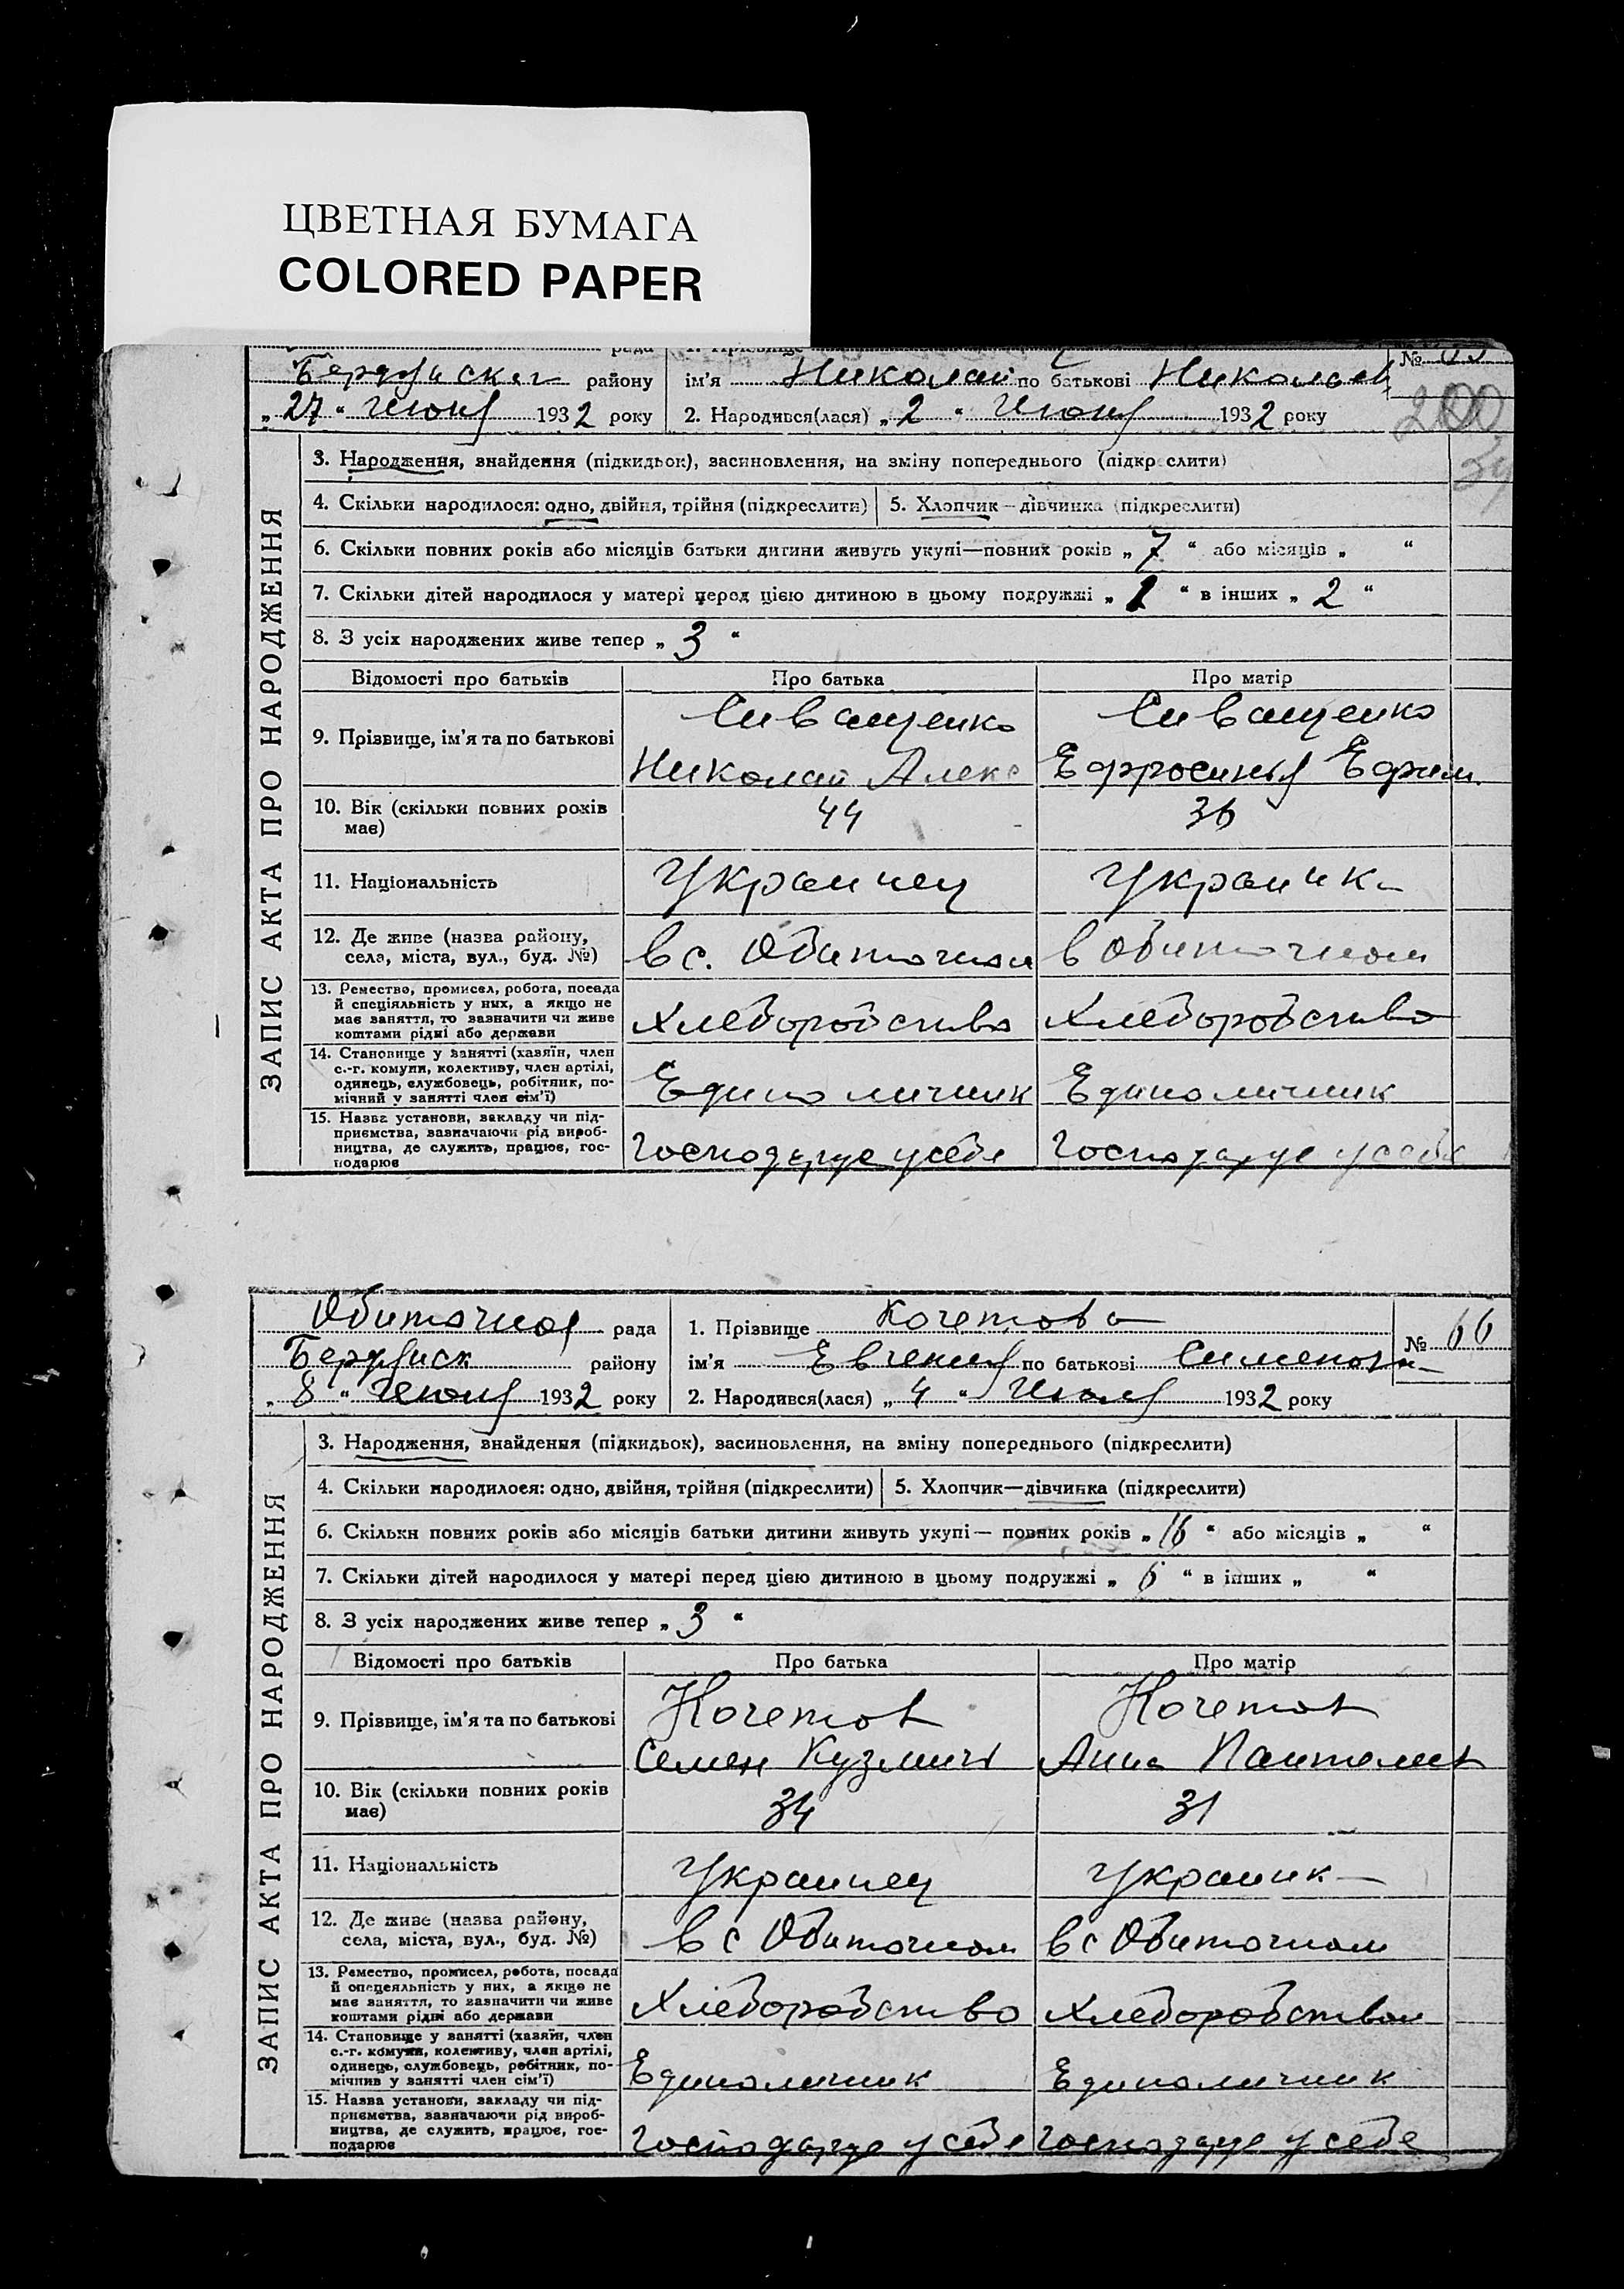 ЦВЕТНАЯ БУМАГА
COLORED PAPER
Бердянск району ім'я Николай по батькові Николаев №
„ 27 “ Июня 1932 року 2. Народився(лася) „ 2 “ Июня 1932 року
200
ЗАПИС АКТА ПРО НАРОДЖЕННЯ
3. Народження, знайдення (підкидьок), засиновлення, на зміну попереднього (підкреслити)
4. Скільки народилося: одно, двійня, трійня (підкреслити) 5. Хлопчик — дівчинка (підкреслити)
6. Скільки повних років або місяців батьки дитини живуть укупі—повних років „ 7 “ або місяців „ “
7. Скільки дітей народилося у матері перед цією дитиною в цьому подружжі „ 1 “ в інших „ 2 “
8. З усіх народжених живе тепер „ 3 “
Відомості про батьків Про батька Про матір
9. Прізвище, ім'я та по батькові Сиващенко Сиващенко
Николай Алекс Ефросинья Ефим.
10. Вік (скільки повних років має) 44 36
11. Національність Украинец Украинк
12. Де живе (назва району, села, міста, вул., буд. №) в с. Обиточном в Обиточном
13. Ремество, промисел, робота, посада
й спеціяльність у них, а якщо не
має заняття, то зазначити чи живе
коштами рідні або держави Хлеборобство Хлеборобство
14. Становище у занятті (хазяїн, член
с.-г. комуни, колективу, член артілі,
одинець, службовець, робітник, по-
мічний у занятті член сім'ї) Единоличник Единоличник
15. Назва установи, закладу чи під-
приємства, зазначаючи рід вироб-
ництва, де служить, працює, гос-
подарює Господарує у себе Господарує у себе
Обиточная рада 1. Прізвище Кочетова № 66
Бердянск району ім'я Евгения по батькові Сименовн
„ 8 “ Июня 1932 року 2. Народився(лася) „ 4 “ Июня 1932 року
ЗАПИС АКТА ПРО НАРОДЖЕННЯ
3. Народження, знайдення (підкидьок), засиновлення, на зміну попереднього (підкреслити)
4. Скільки народилося: одно, двійня, трійня (підкреслити) 5. Хлопчик—дівчинка (підкреслити)
6. Скільки повних років або місяців батьки дитини живуть укупі — повних років „ 16 “ або місяців „ “
7. Скільки дітей народилося у матері перед цією дитиною в цьому подружжі „ 6 “ в інших „ “
8. З усіх народжених живе тепер „ 3 “
Відомості про батьків Про батька Про матір
9. Прізвище, ім'я та по батькові Кочетов Кочетов
Семен Кузмич Анна Пантелев
10. Вік (скільки повних років має) 34 31
11. Національність Украинец Украинк
12. Де живе (назва району, села, міста, вул., буд. №) в с Обиточном в с Обиточном
13. Ремество, промисел, робота, посада
й спецеяльність у них, а якщо не
має заняття, то зазначити чи живе
коштами рідні або держави Хлеборобство Хлеборобством
14. Становище у занятті (хазяїн, член
с.-г. комуни, колективу, член артілі,
одинець, службовець, робітник, по-
мічнив у занятті член сім'ї) Единоличник Единоличник
15. Назва установи, закладу чи під-
приємства, зазначаючи рід вироб-
ництва, де служить, працює, гос-
подарює Господарує у себе Господарує у себе